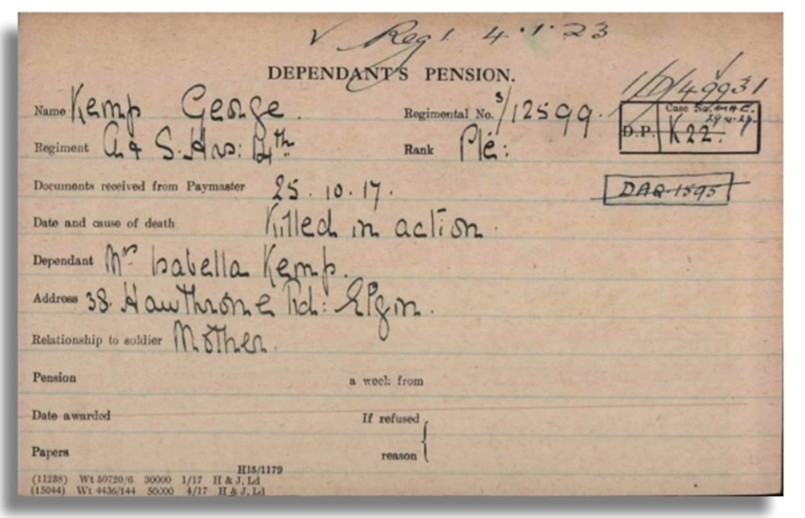 √ Regt 4.1.23
DEPENDANT'S PENSION.
1/D/49931
Name Kemp George. Regimental No. S/12599.
Case No.
D.P. K22.
Regiment A & S. Hrs: 14th Rank Pte:
Documents received from Paymaster 25.10.17.
DAQ-1595
Date and cause of death Killed in action.
Dependant Mrs Isabella Kemp.
Address 38. Hawthrone Rd: Elgin.
Relationship to soldier Mother.
Pension a week from
Date awarded If refused
Papers reason
H15/1179
(11238) Wt 50720/6 30000 1/17 H & J, Ld
(15044) Wt 4436/144 50000 4/17 H & J, Ld